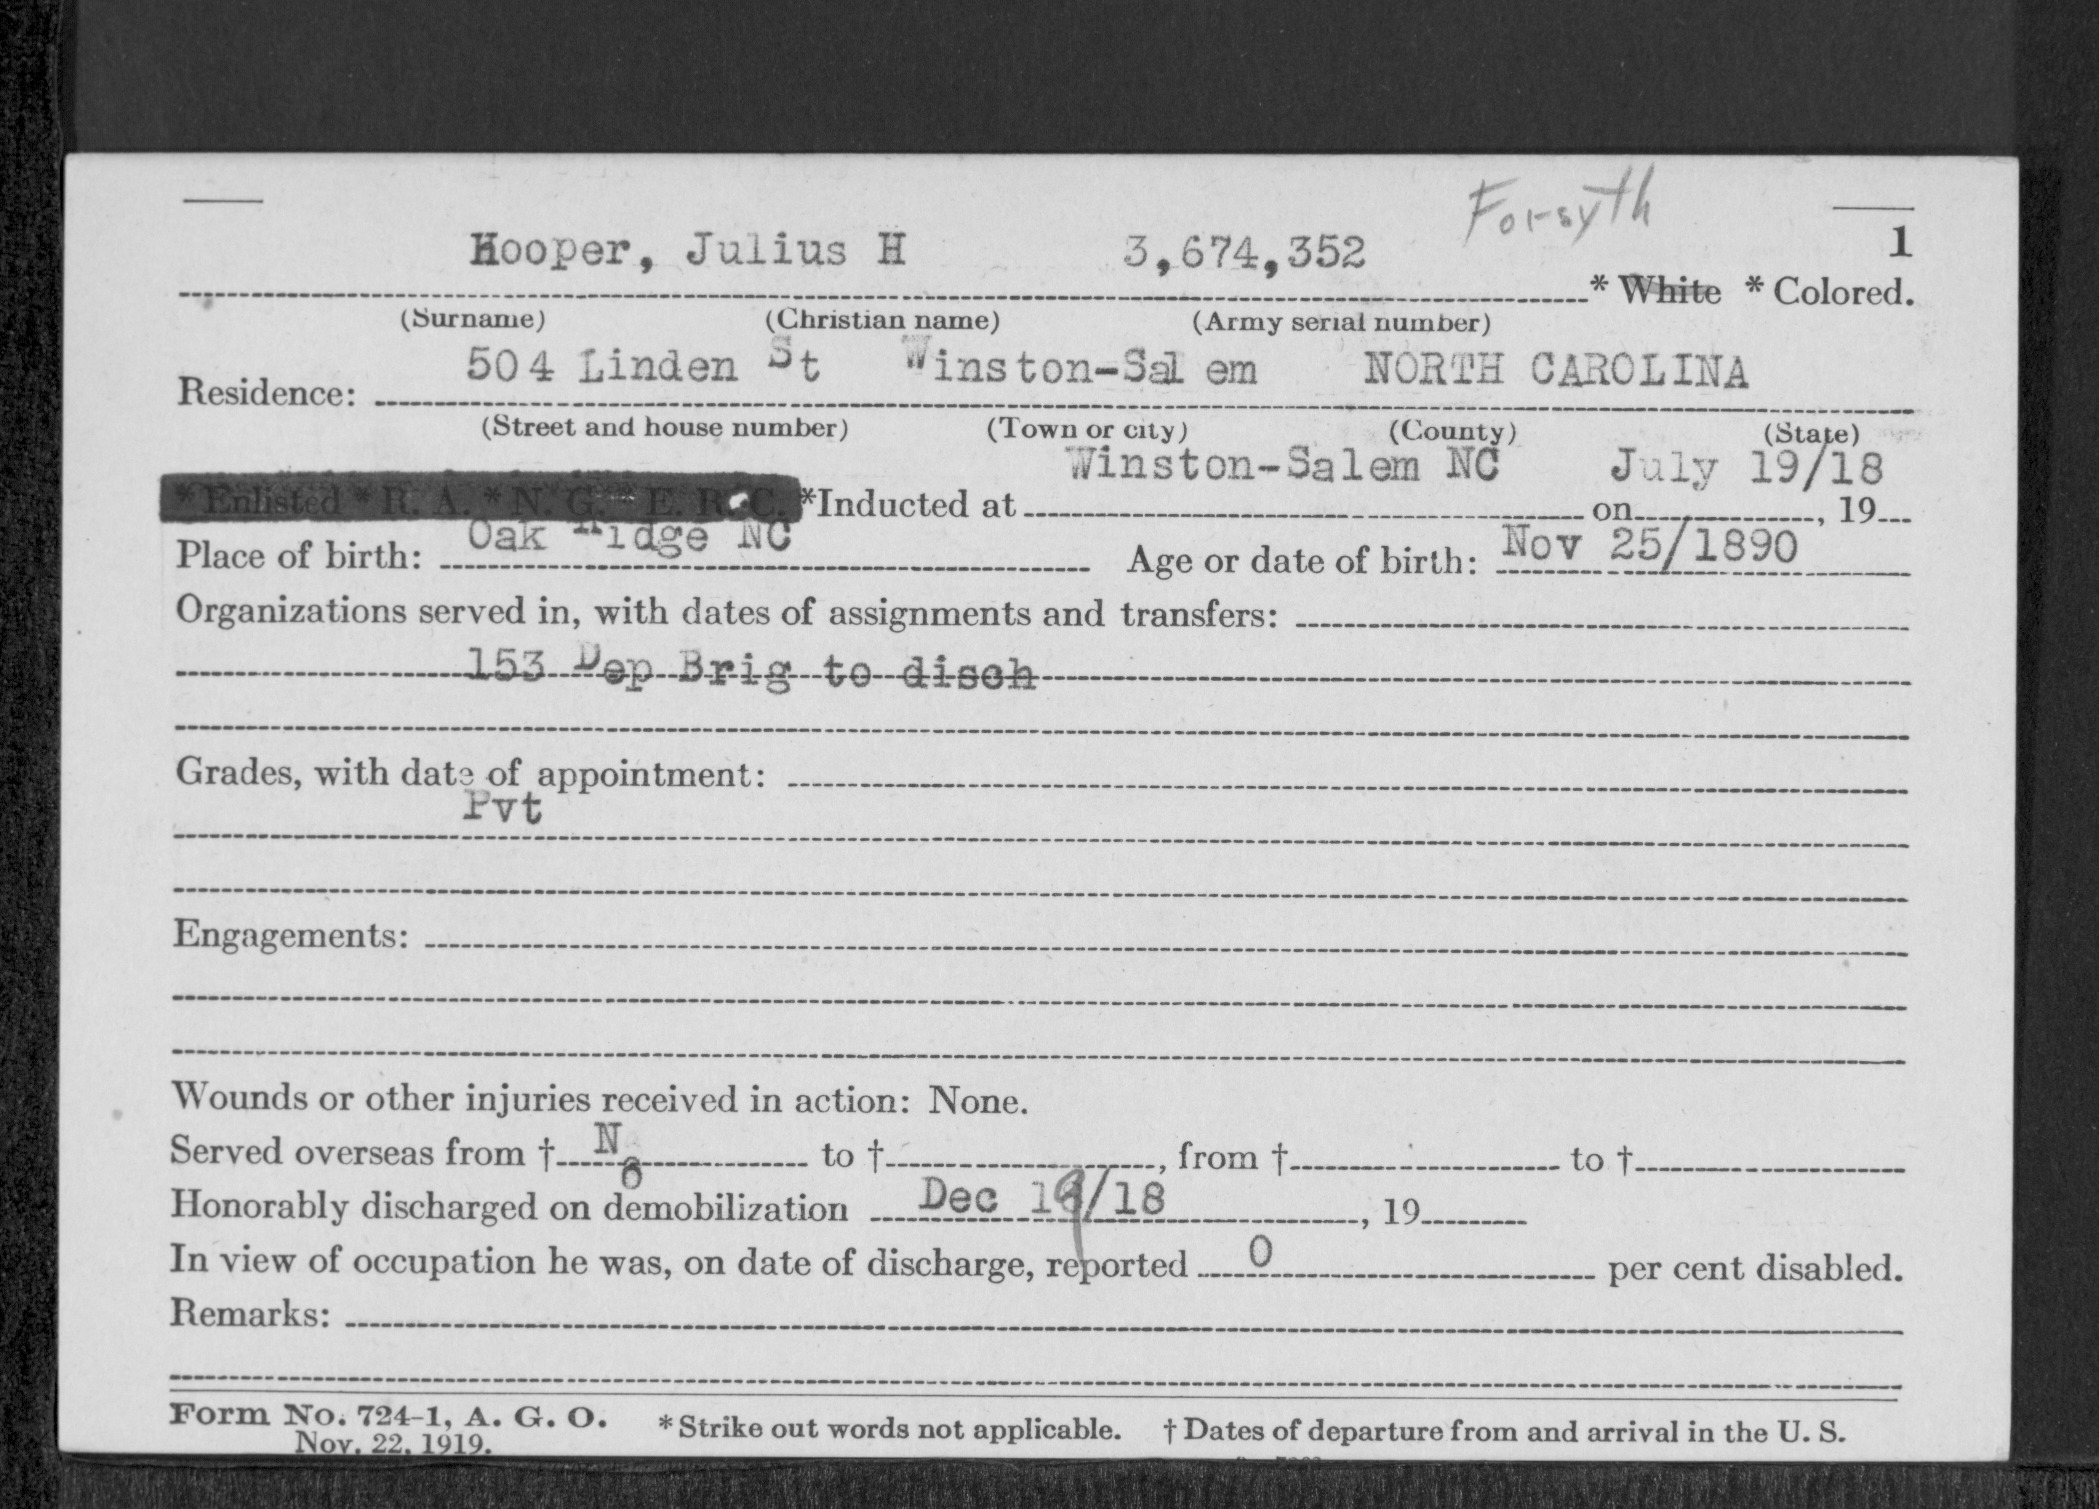 Forsyth
Hooper, Julius H 3,674,352 1
* White * Colored.
(Surname) (Christian name) (Army serial number)
504 Linden St Winston-Salem NORTH CAROLINA
Residence:
(Street and house number) (Town or city) (County) (State)
Winston-Salem NC July 19/18
* Enlisted * R. A. * N. G. * E. R. C. *Inducted at on , 19
Oak Ridge NC Nov 25/1890
Place of birth: Age or date of birth:
Organizations served in, with dates of assignments and transfers:
153 Dep Brig to disch
Grades, with date of appointment:
Pvt
Engagements:
Wounds or other injuries received in action: None.
Served overseas from † No to † , from † to †
Honorably discharged on demobilization Dec 19/18 , 19
In view of occupation he was, on date of discharge, reported 0 per cent disabled.
Remarks:
Form No. 724-1, A. G. O. * Strike out words not applicable. † Dates of departure from and arrival in the U. S.
Nov. 22, 1919.